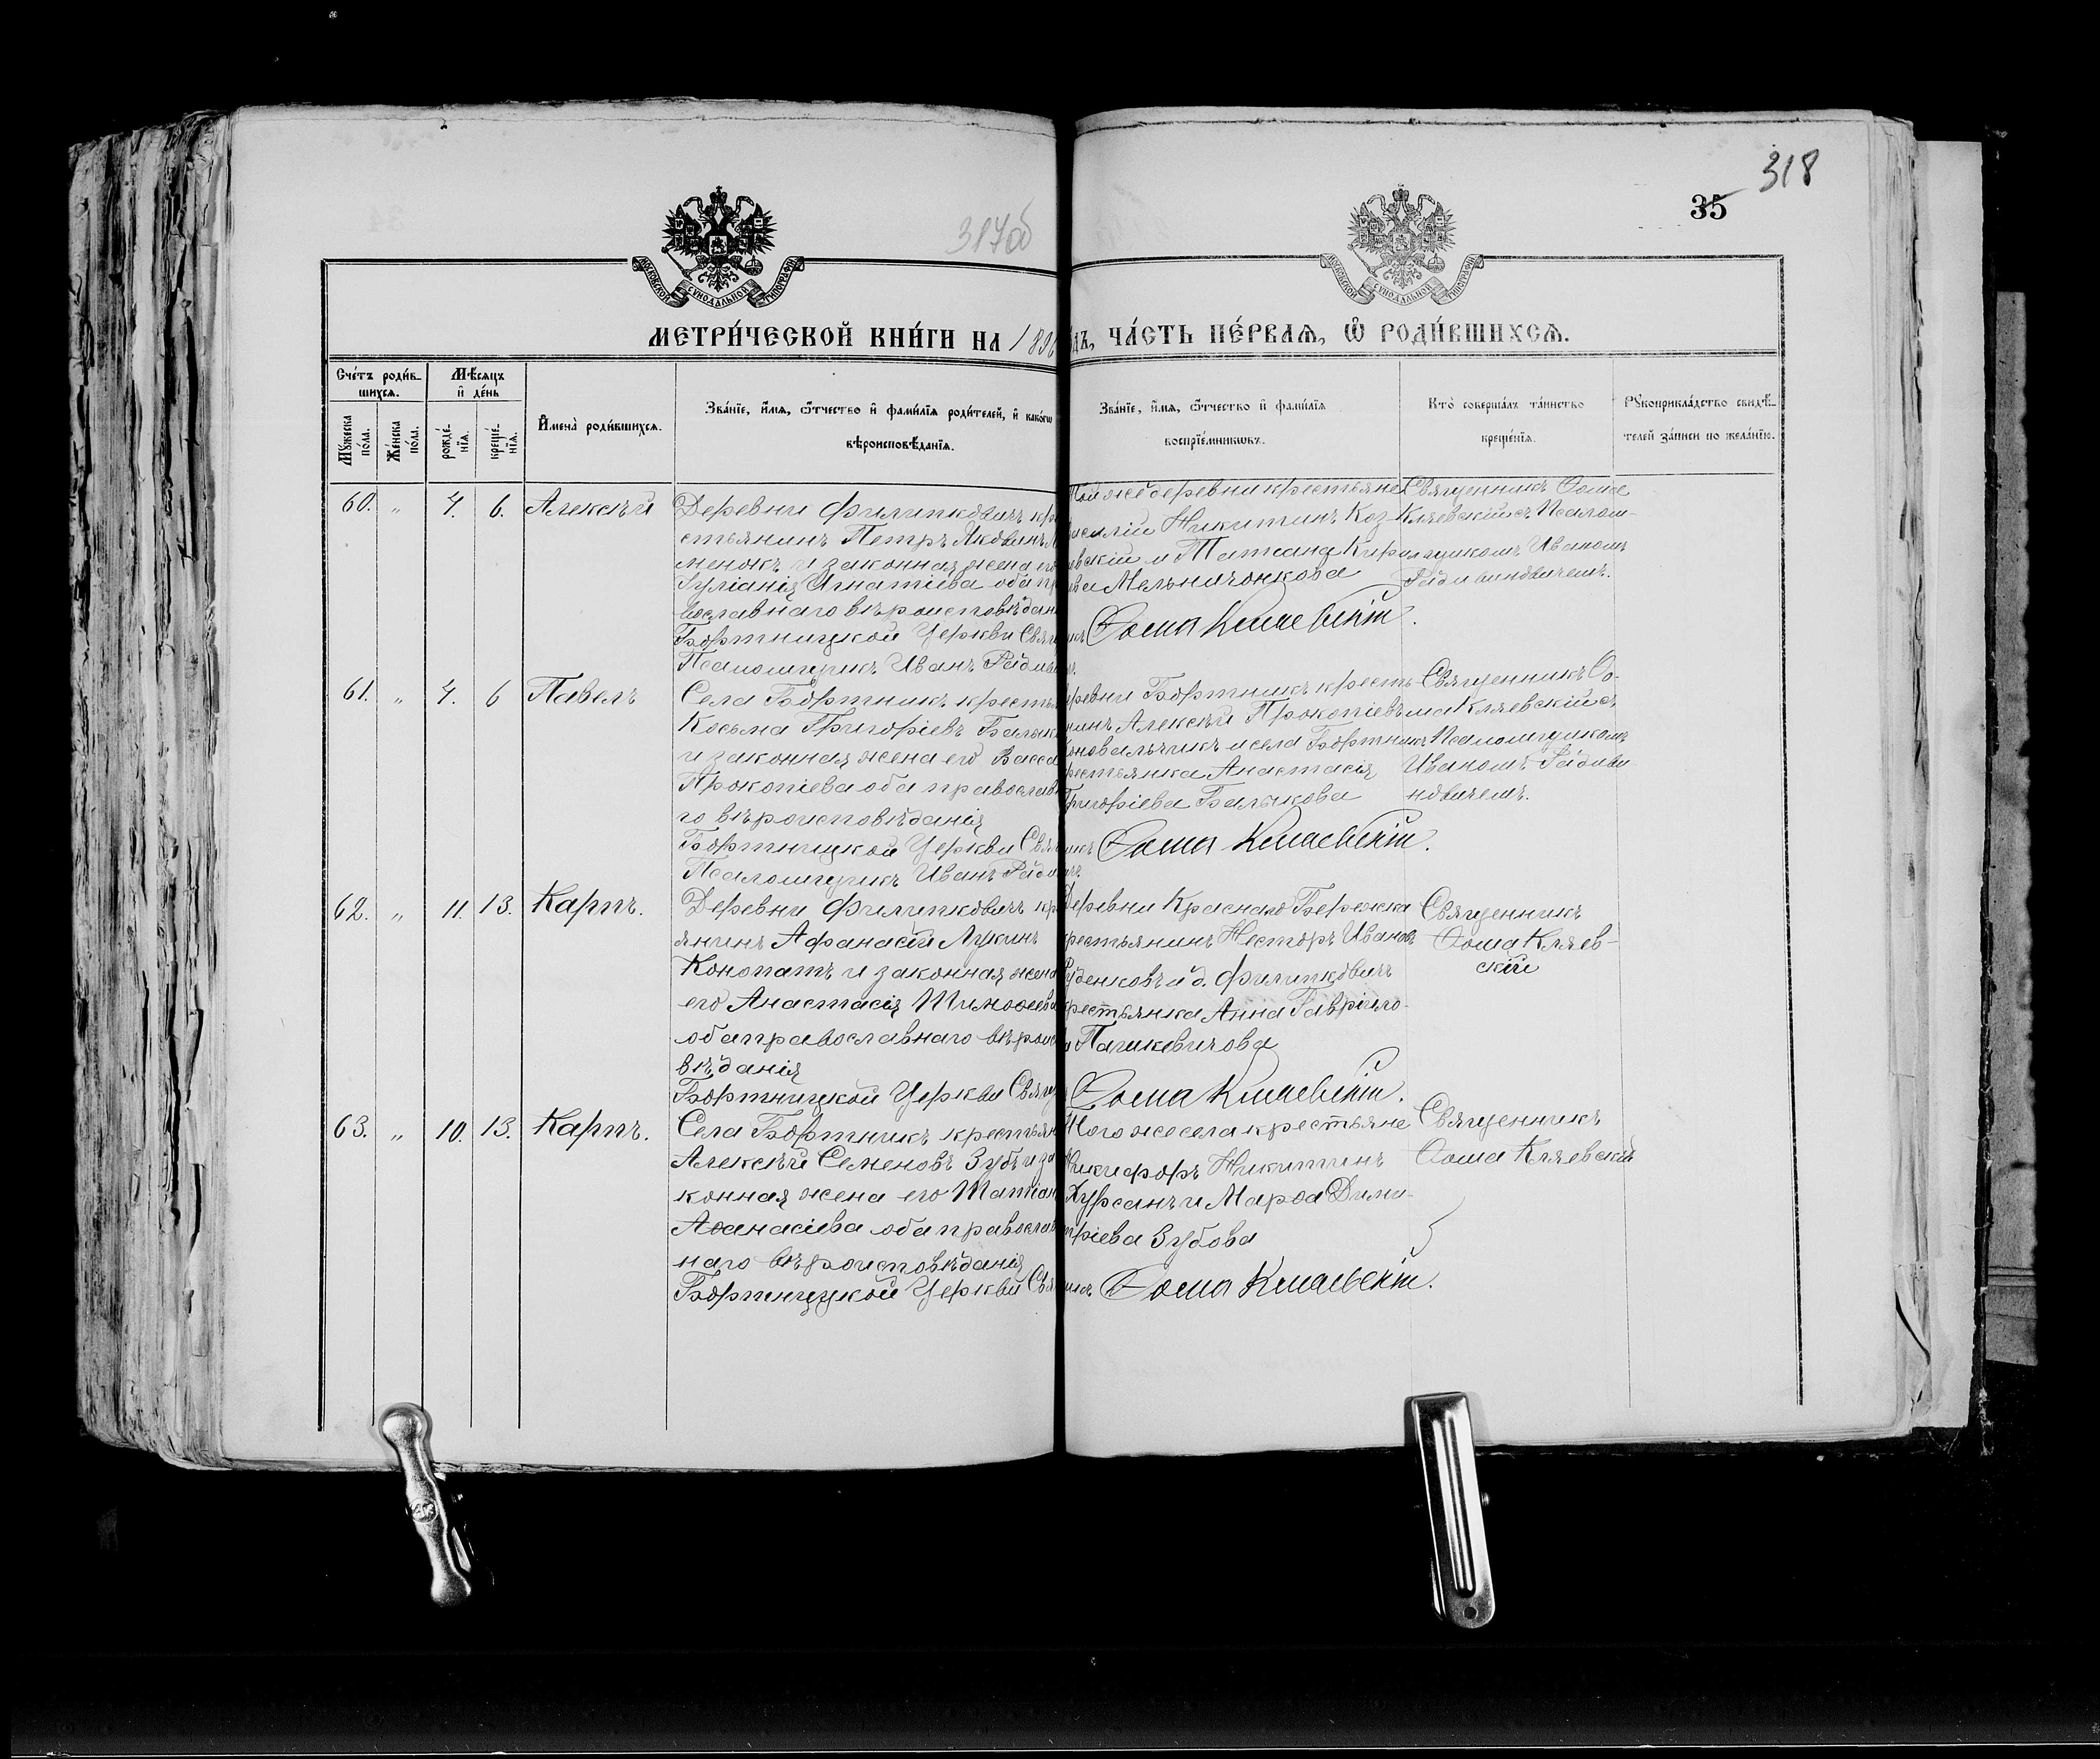 318
35
317об
МОСКОВСКОЙ СУНОДАЛЬНОЙ ТИПОГРАФІИ
МОСКОВСКОЙ СУНОДАЛЬНОЙ ТИПОГРАФІИ
МЕТРИ́ЧЕСКОЙ КНИ́ГИ НА 189
дъ, ЧА́СТЬ ПЕ́РВАѦ, Ѡ҆ РОДИ́ВШИХСѦ.
Сче́тъ роди́в-
шихсѧ.
Мѣ́сѧцъ
и҆ де́нь
Мꙋ́жеска
по́ла.
Же́нска
по́ла.
рожде́-
нїѧ.
креще́-
нїѧ.
И҆мена̀ роди́вшихсѧ.
Зва́нїе, и҆́мѧ, ѻ҆́тчество и҆ фами́лїѧ роди́телей, и҆ како́гѡ
вѣроисповѣ́данїѧ.
Зва́нїе, и҆́мѧ, ѻ҆́тчество и҆ фами́лїѧ
воспрїе́мникѡвъ.
Кто̀ соверша́лъ та́инство
креще́нїѧ.
Рꙋкоприкла́дство свидѣ́-
телей за́писи по жела́нїю.
60. " 4. 6. Алексѣй
Деревни Филипковичъ кре
стьянинъ Петръ Яковлевъ
менокъ и законная жена его
Іуліанія Игнатіева оба пр
вославнаго вѣроисповѣдан
Бортницкой Церкви Свящ
Псаломщикъ Иванъ Радив
Той же деревни крестьяне
силій Никитинъ Коз
евскій и Татіана Кирил
ва Мельничонкова
Ѳома Кляевскій.
Священникъ Ѳома
Кляевскій съ Псалом-
щикомъ Иваномъ
Радивиновичемъ.
61. " 4. 6 Павелъ
Села Бортникъ крестья
Косьма Григоріевъ Балык
и законная жена его Васса
Прокопіева оба православ
го вѣроисповѣданія
Бортницкой Церкви Свя
Псаломщикъ Иванъ Ради
ревни Бортникъ кресть
нинъ Алексѣй Прокопіевъ
новальчикъ и села Бортникъ
рестьянка Анастасія
Григоріева Балыкова
Ѳома Кляевскій.
Священникъ Ѳо-
ма Кляевскій съ
Псаломщикомъ
Иваномъ Радиви
новичемъ.
62. " 11. 13. Карпъ.
Деревни Филипковичъ кр
янинъ Афанасій Лукинъ
Конопатъ и законная жена
его Анастасія Тимоѳеева
оба православнаго вѣроис
вѣданія
Бортницкой Церкви Свящ
Деревни Краснаго Бережка
рестьянинъ Несторъ Ивановъ
денковъ и д. Филипковичъ
крестьянка Анна Гаврило-
Пашкевичова
Ѳома Кляевскій.
Священникъ
Ѳома Кляев-
скій
63. " 10. 13. Карпъ.
Села Бортникъ крестьян
Алексѣй Семеновъ Зубъ и за
конная жена его Татіан
Аѳанасіева оба православ
наго вѣроисповѣданія
Бортницкой Церкви Свя
Того же села крестьяне
Никифоръ Никитинъ
Хурсанъ и Марѳа Дими-
тріева Зубова
Ѳома Кляевскій.
Священникъ
Ѳома Кляевскій